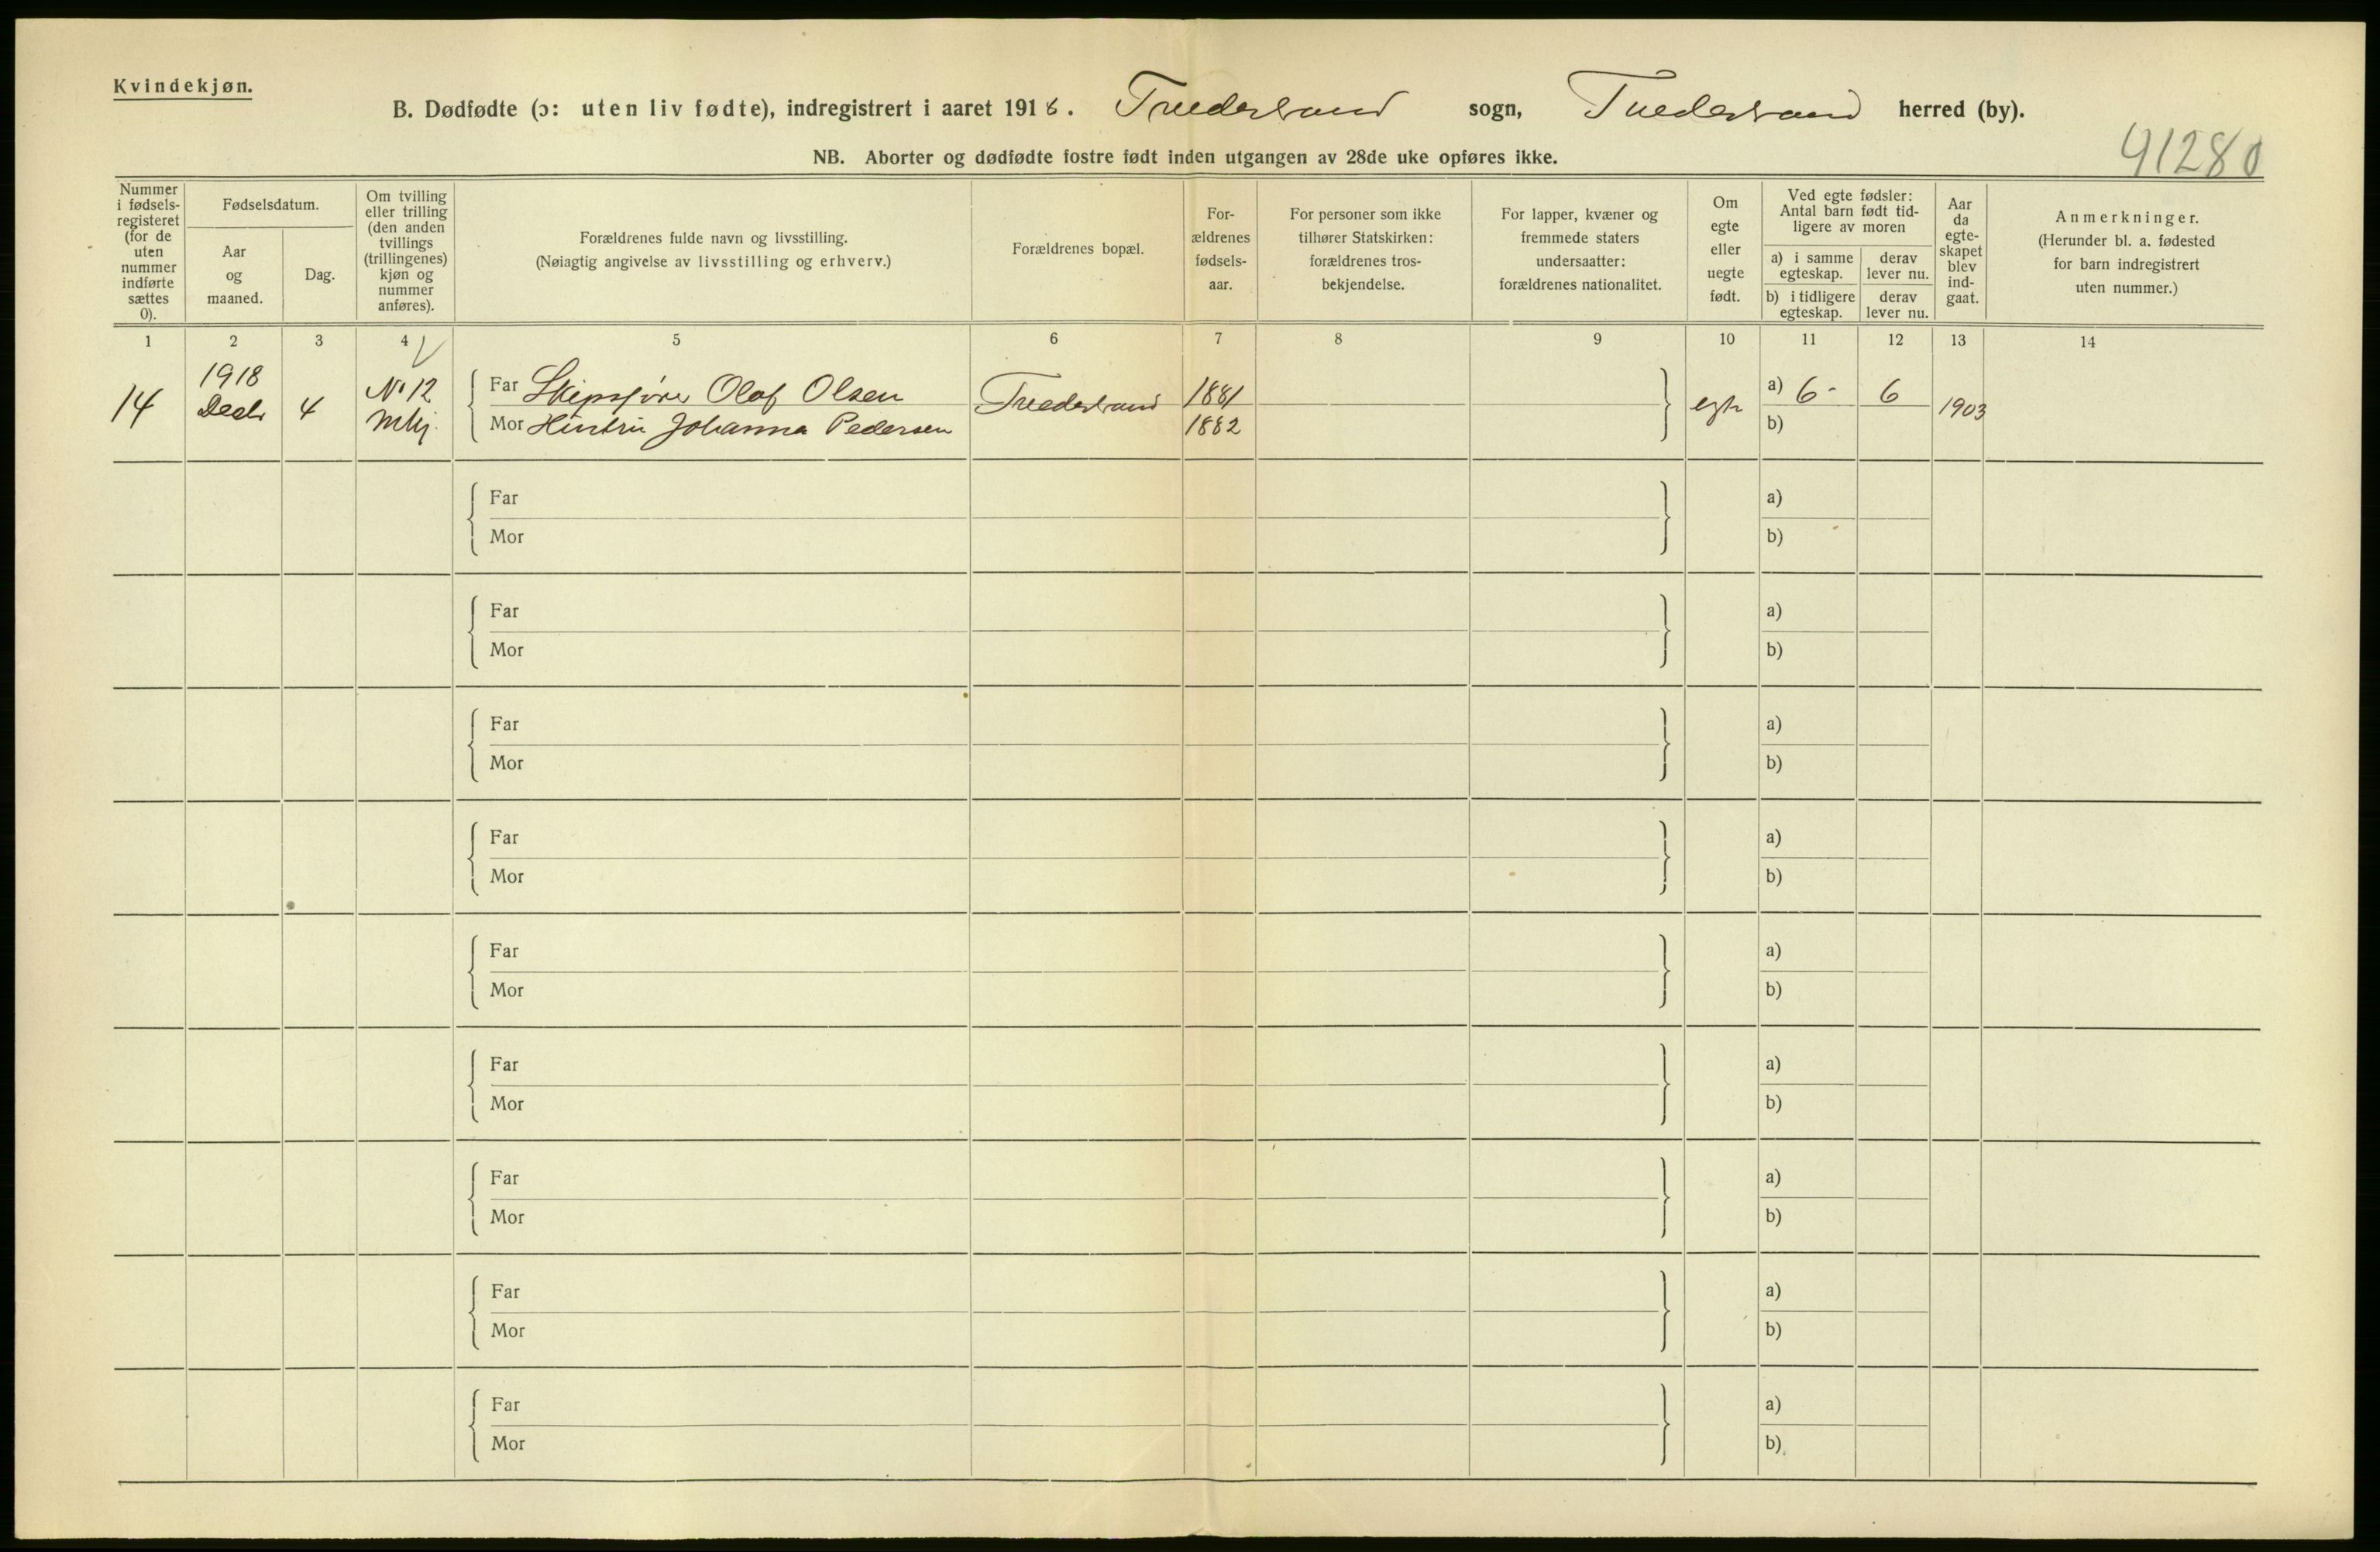 Kvindekjøn.
B. Dødfødte (ɔ: uten liv fødte), indregistrert i aaret 1918. Tvedestrand sogn, Tvedestrand herred (by).
NB. Aborter og dødfødte fostre født inden utgangen av 28de uke opføres ikke.
91280
Nummer i fødsels-registeret (for de uten nummer indførte sættes 0).
Fødselsdatum.
Aar og maaned.
Dag.
Om tvilling eller trilling (den anden tvillings (trillingenes) kjøn og nummer anføres).
Forældrenes fulde navn og livsstilling.
(Nøiagtig angivelse av livsstilling og erhverv.)
Forældrenes bopæl.
For-ældrenes fødsels-aar.
For personer som ikke tilhører Statskirken: forældrenes tros-bekjendelse.
For lapper, kvæner og fremmede staters undersaatter: forældrenes nationalitet.
Om egte eller uegte født.
Ved egte fødsler: Antal barn født tid-ligere av moren
a) i samme egteskap.
derav lever nu.
b) i tidligere egteskap.
derav lever nu.
Aar da egte-skapet blev ind-gaat.
Anmerkninger.
(Herunder bl. a. fødested for barn indregistrert uten nummer.)
1 2 3 4 5 6 7 8 9 10 11 12 13 14
14 1918 Decbr 4 No 12 mkj.
Far Skipsfører Olaf Olsen Tvedestrand 1881 egte a) 6 - 6 1903
Mor Hustru Johanna Pedersen 1882 b)
Far a)
Mor b)
Far a)
Mor b)
Far a)
Mor b)
Far a)
Mor b)
Far a)
Mor b)
Far a)
Mor b)
Far a)
Mor b)
Far a)
Mor b)
Far a)
Mor b)